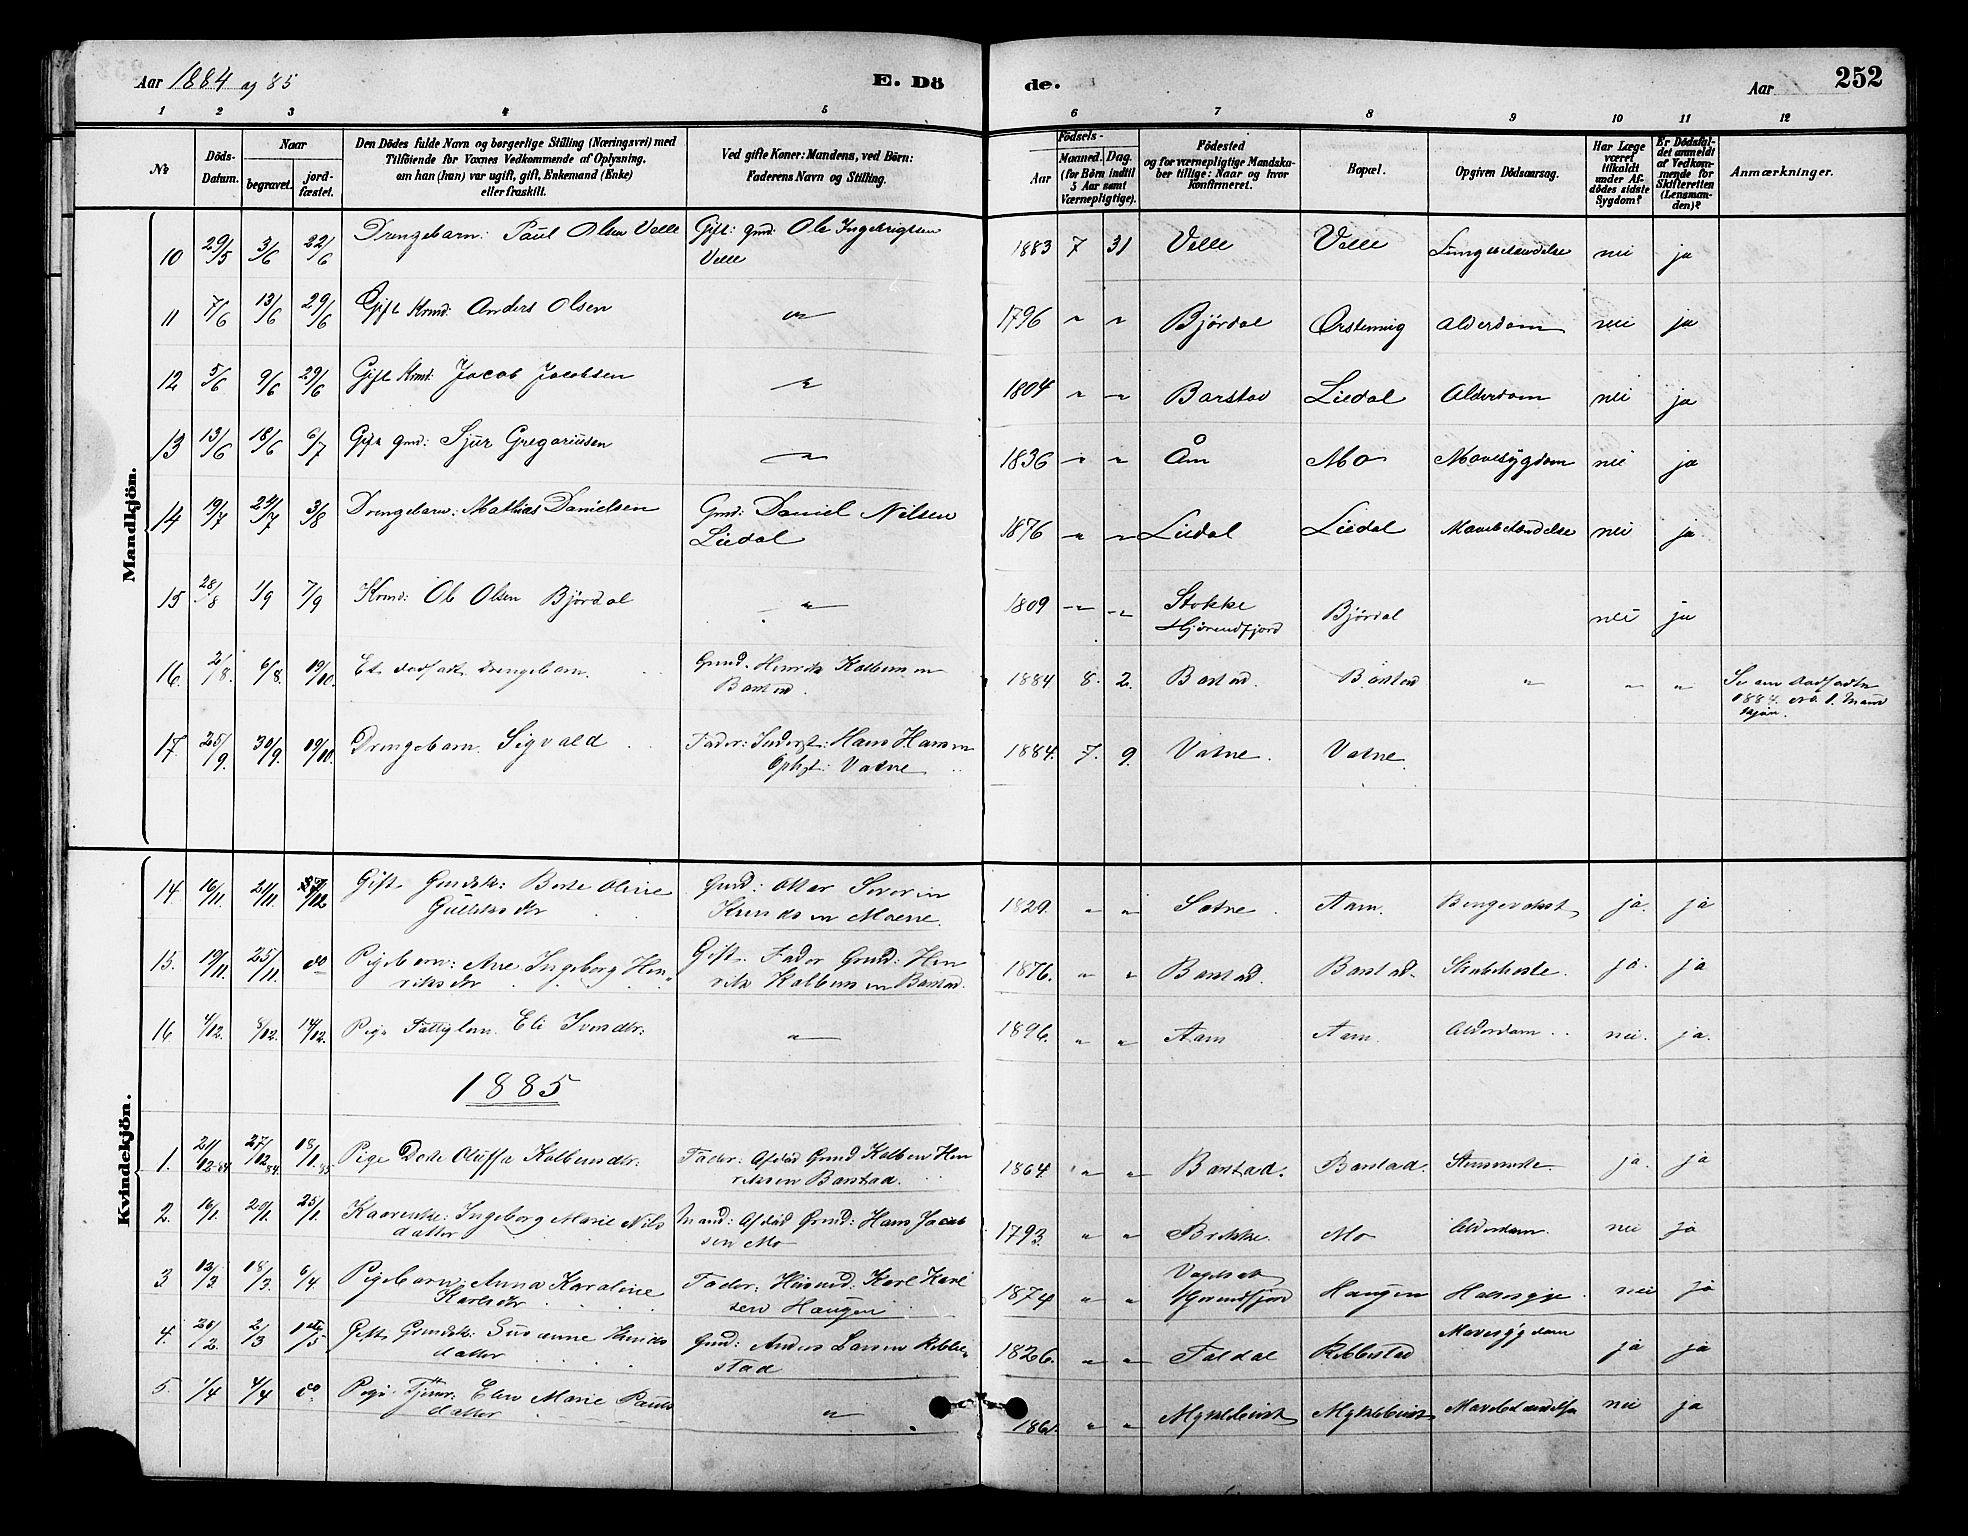 Aar 1884 og 85 E. Dö de. Aar 252
1 2 3 4 5 6 7 8 9 10 11 12
No Döds-Datum. Naar begravet. jordfæstet. Den Dödes fulde Navn og borgerlige Stilling (Næringsvei) med Tilföiende for Voxnes Vedkommende af Oplysning, om han (hun) var ugift, gift, Enkemand (Enke) eller fraskilt. Ved gifte Koner: Mandens, ved Börn: Faderens Navn og Stilling. Födsels- Aar Maaned. Dag. (for Börn indtil 5 Aar samt Værnepligtige). Födested og for værnepligtige Mandskaber tillige: Naar og hvor konfirmeret. Bopæl. Opgiven Dödsaarsag. Har Læge været tilkaldt under Afdödes sidste Sygdom? Er Dödsfaldet anmeldt af Vedkommende for Skifteretten (Lensmanden)? Anmærkninger.
Mandkjön.
10 29/5 3/6 22/6 Drengebarn: Paul Olsen Velle Gift: Gmd: Ole Ingebrigtsen Velle 1883 7 31 Velle Velle Lungebetændelse nei ja
11 7/6 13/6 29/6 Gift Krmd: Anders Olsen " 1796 " " Björdal Örstenvig Alderdom nei ja
12 5/6 9/6 29/6 Gift Krmd: Jacob Jacobsen " 1804 " " Barstad Liedal Alderdom nei ja
13 13/6 18/6 6/7 Gift Gmd: Sjur Gregoriusen " 1836 " " Åm Mo Mavesygdom nei ja
14 19/7 24/7 3/8 Drengebarn: Mathias Danielsen Gmd: Daniel Nilsen Liedal 1876 " " Liedal Liedal Mavebetændelse nei ja
15 28/8 1/9 7/9 Krmd: Ole Olsen Björdal " 1809 " " Stokke Hjörendfjord Björdal nei ja
16. 2/8. 6/8. 19/10. Et dödfødt Drengebarn. Gmd. Henrik Kolbensen Barstad. 1884 8. 2. Barstad. Barstad " " " Se om dødfødte 1884 No. 1. Mandkjøn.
17. 25/9. 30/9. 19/10. Drengebarn. Sigvald Fader: Inderst: Hans Hansen Ophgt: Vatne 1884. 7. 9. Vatne. Vatne.
Kvindekjön.
14 16/11. 21/11. Gift Gmdsk: Berte Oline Gmd: Ottar Severin Knudsen Moene. 1829. " " Sætre Aam. ja. ja
15. 19/11. 25/11. do Pigebarn: Ane Ingeborg Henriksdtr Gift. Fader Gmd: Henrik Kolbensen Barstad. 1876. " " Barstad. Barstad. Strubehoste. ja. ja
16 4/12. 8/12. 14/12. Pige Fattiglem. Eli Iversdtr: " 1896. " " Aam Aam. Alderdom nei. ja.
1885
1. 21/12.84 27/12.84 18/1.85 Pige Dorte Oluffa Kolbensdtr: Fader: Afdød Gmd Kolben Henriksen Barstad. 1864 " " Barstad. Barstad. ja. ja
2. 16/1. 20/1. 25/1. Kaarenke: Ingeborg Marie Nilsdatter Mand: Afdød Gmd: Hans Jacobsen Mo 1793. " " Brekke. Mo Alderdom. nei ja
3 12/3 18/3. 6/4 Pigebarn: Anna Karoline Karlsdtr Fader: Husmd. Karl Karlsen Haugen 1874 " " Hjörendfjord Haugen Halssyge. nei ja
4. 20/2. 2/3 Gift Gmdsk: Susanne Knudsdatter Gmd: Anders Larsen Ribbestad 1826. " " Foldal Ribbestad Mavesygdom ja ja
5. 1/4 4/4 do Pige. Tjener: Elen Marie Paulsdatter " 1861. " " Myklebust Myklebust Mavebetændelse nei ja